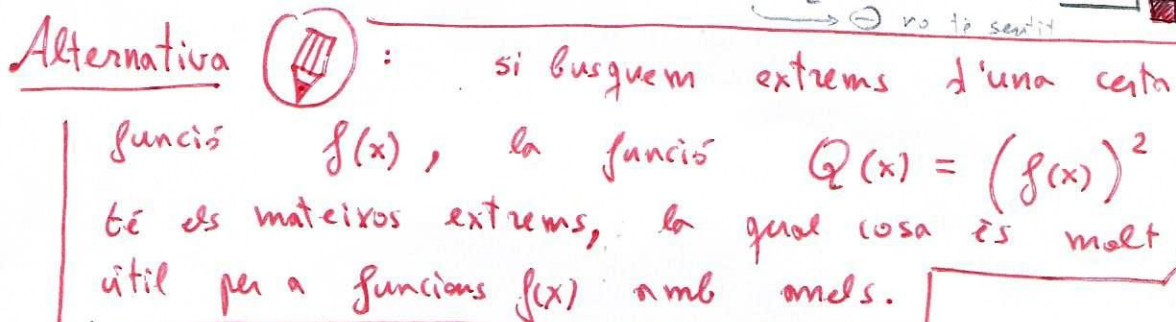 ⊖ no té sentit
Alternativa : si busquem extrems d'una certa
funció f(x), la funció Q(x) = (f(x))²
té els mateixos extrems, la qual cosa és molt
útil per a funcions f(x) amb arrels.